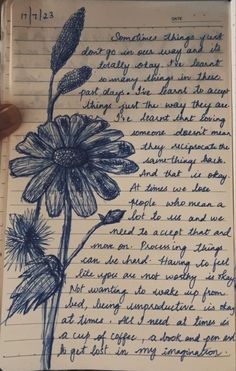 17/7/23
DATE
Sometimes things just
don't go in our way and its
totally okay. I've learnt
so many things in these
past days. I've learnt to accept
things just the way they are
I've learnt that loving
someone doesn't mean
they reciprocate the
same things back.
And that is okay.
At times we lose
people who mean a
lot to us and we
need to accept that and
move on. Processing things
can be hard. Having to feel
like you are not worthy is okay
Not wanting to wake up from
bed, being unproductive is okay
at times. All I need at times is
a cup of coffee, a book and pen and
to get lost in my imagination.